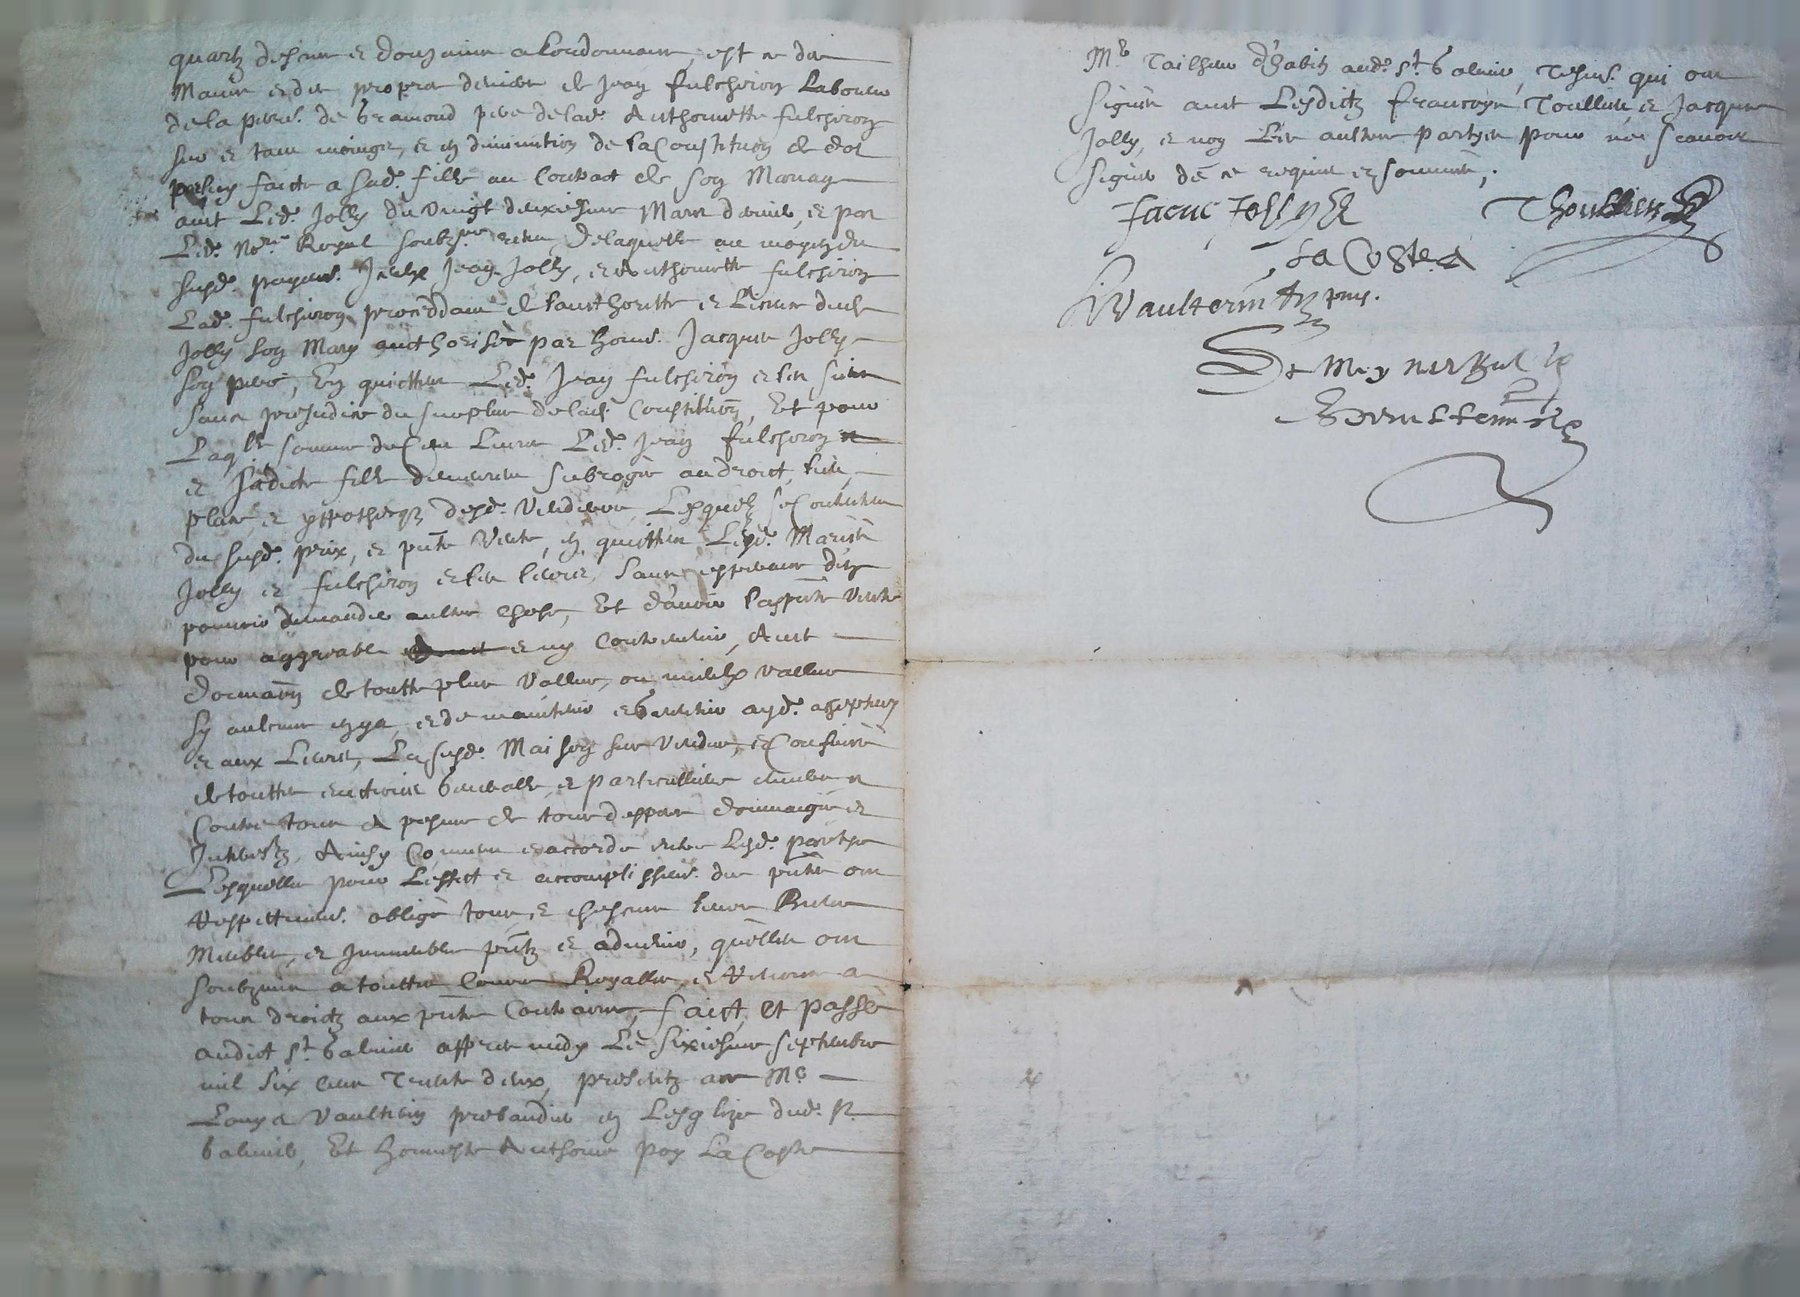 quartz descus et douzains a l'ordonnance, et ce des
mains et des propres deniers de Jean fulchiron Laboureur
de la parr. de Gramond pere de lad. Anthoinette fulchiron
sur et tant moings, et en diminution de la Constitution de dot
par luy faicte a sad. fille au Contract de son Mariage
avec Led. Jolly du vingt deuxiesme Mars dernier, et par
Led. No.re Royal soubz.ne receu, de laquelle au moyen du
susd. payem. Iceulx Jean Jolly, et Anthoinette fulchiron
Lad. fulchiron proceddant de l'authoritte et Licence dud.
Jolly son Mary aucthorisé par hon. Jacques Jolly
son pere, En quittent Led. Jean fulchiron et les siens
sans prejudice du surplus de lad. Constitution, Et pour
Laq.lle somme de Cent Livres Led. Jean fulchiron
et sadicte fille demeurent subrogés au droict, lieu,
place et yppotheque desd. vendeurs, Lesquelz se Contentent
du susd. prix, et p.nte vente, en quittent Lesd. Mariés
Jolly et fulchiron et les leurs, sans esperance d'en
pouvoir demander aultre chose, Et d'avoir la p.nte vente
pour aggreable et n'y Contrevenir, Avec
donnation de toutte plus valleur, ou meilheur valleur
sy aulcune en y a, et de maintenir et garentir aud. acepteur
et aux Leurs, La susd. Maison sus vendue, et Confinée
de toutte eviction generalle, et particulliere envers et
Contre tous a peyne de tous despens dommages et
Interestz, Ainsy Convenu et accordé entre Lesd. partyes
Lesquelles pour L'effect et accomplissem. des p.ntes ont
respectivem. obligé tous et chescuns leurs Biens
Meubles, et Immeubles p.ntz et advenir, qu'elles ont
soubzmis a touttes Cours Royalles, et renoncé a
tous droictz aux p.ntes Contraires, faict et passé
audict S.t Galmier appres midy Le sixiesme septembre
mil six cens Trente deux, presentz a ce M.e
Louys Vaultrin prebandier en L'esglize dud. S.t
Galmier, Et honneste Anthoine poy La Coste
M.e Tailheur d'habitz aud. S.t Galmier, Tesm. qui ont
signé avec Lesdictz francoys Toullieu et Jacques
Jolly, et non Les aultres partyes pour ne scavoir
signer de ce requis et sommés,
Jacques Jolly
Thoullieu
La Coste
Vaulterin p.nt
De Meynis